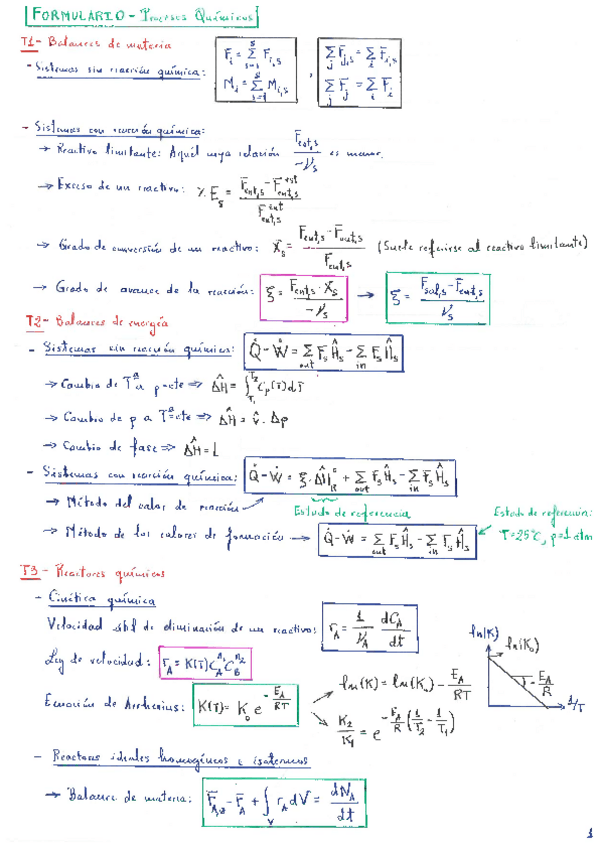 FORMULARIO - Procesos Químicos
T1 - Balances de materia
- Sistemas sin reacción química: F_i = Σ_{s=1}^{S} F_{i,s} , Σ_j F_{j,s} = Σ_i F_{i,s}
M_i = Σ_{s=1}^{S} M_{i,s} Σ_j F_j = Σ_i F_i
- Sistemas con reacción química:
→ Reactivo limitante: Aquél cuya relación F_{ent,s} / -ν_s es menor.
→ Exceso de un reactivo: % E_s = (F_{ent,s} - F_{ent,s}^{est}) / F_{ent,s}^{est}
→ Grado de conversión de un reactivo: X_s = (F_{ent,s} - F_{out,s}) / F_{ent,s} (Suele referirse al reactivo limitante)
→ Grado de avance de la reacción: ξ = F_{ent,s} · X_s / -ν_s → ξ = (F_{sal,s} - F_{ent,s}) / ν_s
T2 - Balances de energía
- Sistemas sin reacción química: Q̇ - Ẇ = Σ_{out} F_s Ĥ_s - Σ_{in} F_s Ĥ_s
→ Cambio de Tª a p=cte ⇒ ΔĤ = ∫_{T_1}^{T_2} C_p(T) dT
→ Cambio de p a Tª=cte ⇒ ΔĤ = v̂ · Δp
→ Cambio de fase ⇒ ΔĤ = L
- Sistemas con reacción química: Q̇ - Ẇ = ξ · ΔĤ_R° + Σ_{out} F_s Ĥ_s - Σ_{in} F_s Ĥ_s
→ Método del calor de reacción
Estado de referencia
Estado de referencia:
→ Método de los calores de formación → Q̇ - Ẇ = Σ_{out} F_s Ĥ_s - Σ_{in} F_s Ĥ_s
T=25°C, p=1 atm
T3 - Reactores químicos
- Cinética química
Velocidad de eliminación de un reactivo: r_A = 1/ν_A dC_A/dt
Ley de velocidad: r_A = K(T) C_A^{n_1} C_B^{n_2}
Ecuación de Arrhenius: K(T) = K_0 e^{-E_A/RT}
ln(K) = ln(K_0) - E_A/RT
K_2/K_1 = e^{-E_A/R (1/T_2 - 1/T_1)}
ln(K)
ln(K_0)
-E_A/R
1/T
- Reactores ideales homogéneos e isotermos
→ Balance de materia: F_{A,0} - F_A + ∫_V r_A dV = dN_A/dt
1